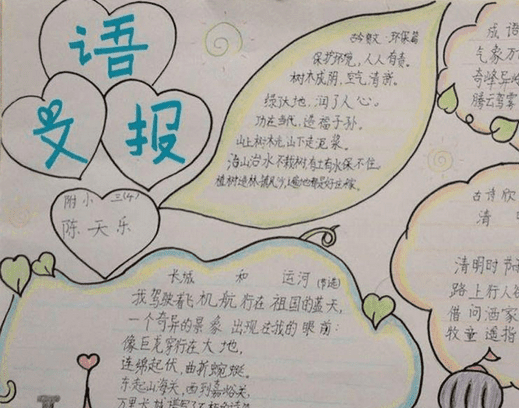 语
文
报
附小 三(4)
陈天乐
古今贤文·环保篇
保护环境,人人有责。
树木成阴,空气清新。
绿了大地,润了人心。
功在当代,造福子孙。
山上树木光,山下走泥浆。
治山治水不栽树,有土有水保不住。
成语
气象万
奇峰异
腾云驾雾
古诗欣
清
清明时节
路上行人
借问酒家
牧童遥指
长城 和 运河(节选)
我驾驶着飞机航行在祖国的蓝天,
一个奇异的景象出现在我的眼前:
像巨龙穿行在大地,
连绵起伏,曲折蜿蜒。
东起山海关,西到嘉峪关,
万里长城